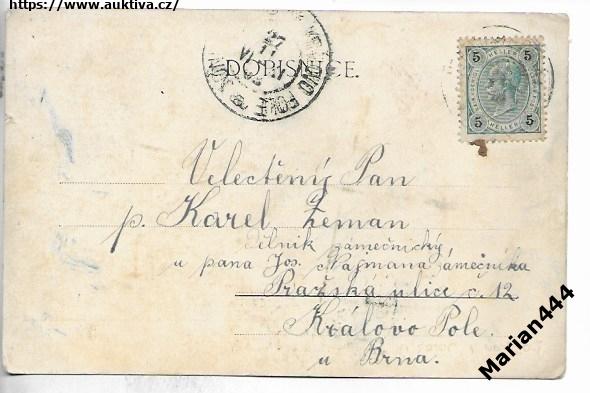 https://www.auktiva.cz/
DOPISNICE.
5 5
HELLER
5 5
Velectěný Pan
p. Karel Zeman
dělník zámečnický,
u pana Jos. Najmana zámečníka
Pražská ulice č. 12
Královo Pole.
u Brna.
Marian444